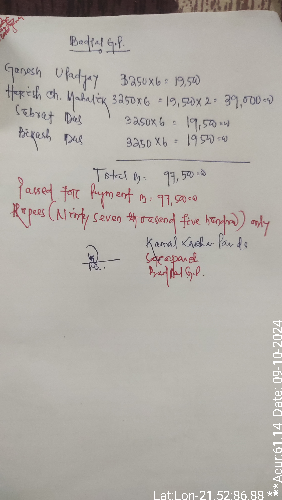 Badpal G.P.
Ganesh Upadhyay 3250x6 = 19,500
Harish Ch. Mahalik 3250x6 = 19,500 x 2 = 39,000=00
Subrat Das 3250x6 = 19,500=00
Bikash Das 3250x6 = 19500=00
Total Rs. 97,500=00
Passed for Payment Rs: 97,500=00
Rupees (Ninty seven thousand five hundred) only
Badpal G.P.
Lat:Lon-21.52:86.88 ***Acur:61.14 Date: 09-10-2024